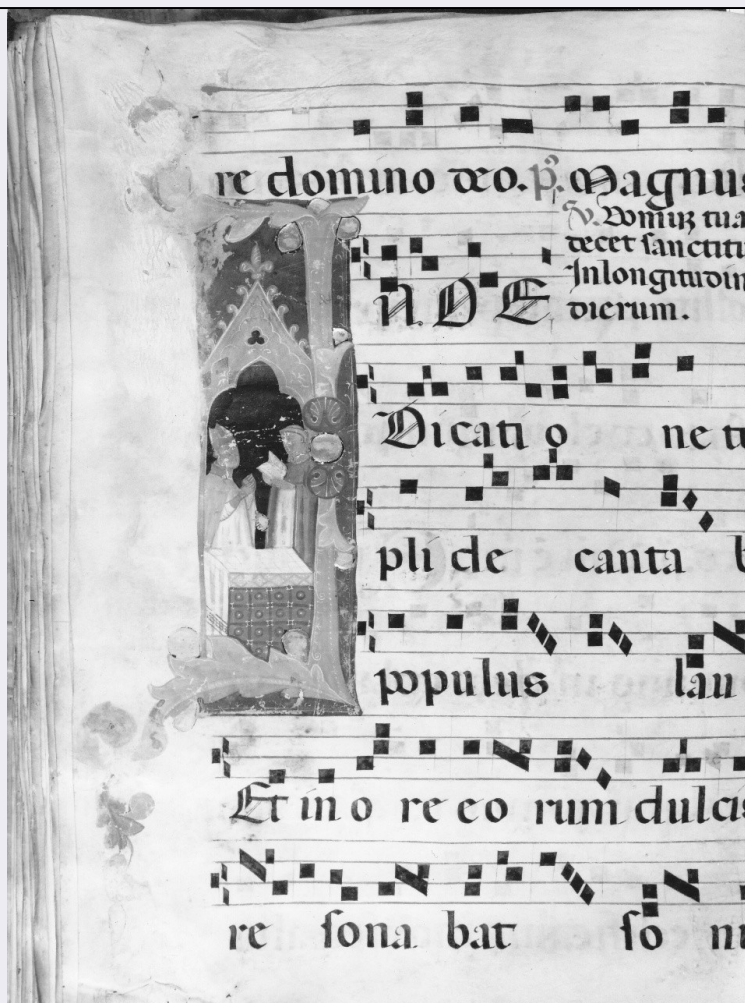 re domino deo. p̃. Magnus
V. Domuȝ tua
decet sanctitu
Inlongitudin
dierum.
IN. DE
Dicati o ne te
pli de canta b
populus lau
Et in o re eo rum dulcis
re sona bat so nu